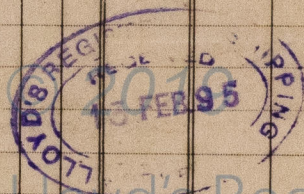 LLOYD'S REGIS SHIPPING
RECEIVED
15 FEB 95
© 2019
Lloyd's Re